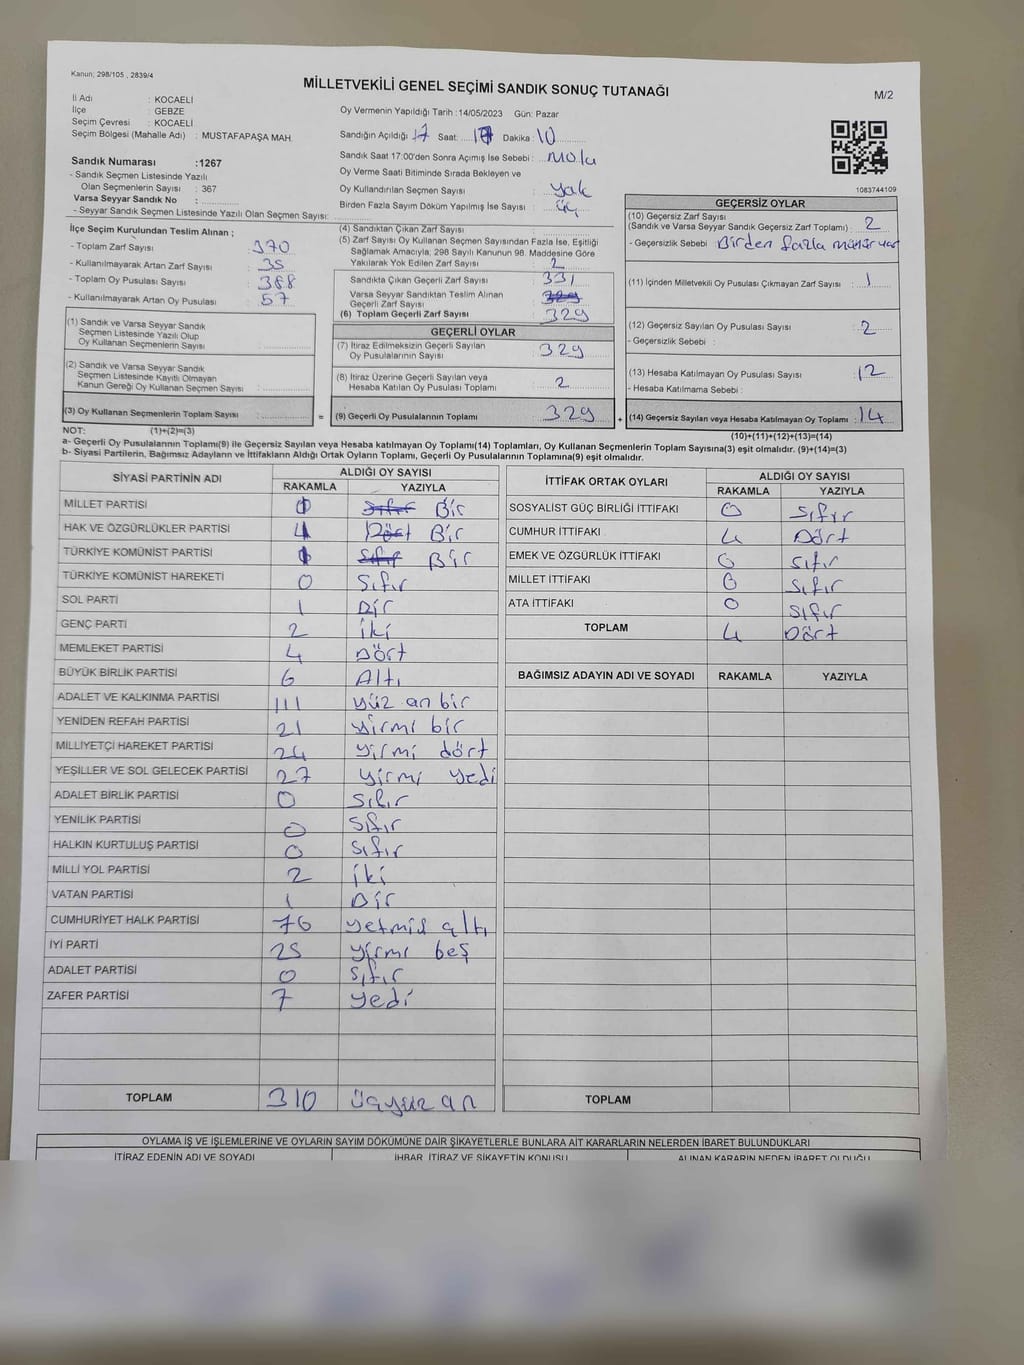 Kanun; 298/105 , 2839/4
MİLLETVEKİLİ GENEL SEÇİMİ SANDIK SONUÇ TUTANAĞI
M/2
İl Adı : KOCAELİ
İlçe : GEBZE
Seçim Çevresi : KOCAELİ
Seçim Bölgesi (Mahalle Adı) : MUSTAFAPAŞA MAH.
Sandık Numarası :1267
- Sandık Seçmen Listesinde Yazılı
Olan Seçmenlerin Sayısı : 367
Varsa Seyyar Sandık No :
- Seyyar Sandık Seçmen Listesinde Yazılı Olan Seçmen Sayısı:
Oy Vermenin Yapıldığı Tarih : 14/05/2023 Gün: Pazar
Sandığın Açıldığı 17 Saat: 17 Dakika: 10
Sandık Saat 17:00'den Sonra Açımış İse Sebebi : mola
Oy Verme Saati Bitiminde Sırada Bekleyen ve
Oy Kullandırılan Seçmen Sayısı : yok
Birden Fazla Sayım Döküm Yapılmış İse Sayısı : üç
1083744109
İlçe Seçim Kurulundan Teslim Alınan ;
- Toplam Zarf Sayısı : 370
- Kullanılmayarak Artan Zarf Sayısı : 35
- Toplam Oy Pusulası Sayısı : 388
- Kullanılmayarak Artan Oy Pusulası : 57
(1) Sandık ve Varsa Seyyar Sandık
Seçmen Listesinde Yazılı Olup
Oy Kullanan Seçmenlerin Sayısı :
(2) Sandık ve Varsa Seyyar Sandık
Seçmen Listesinde Kayıtlı Olmayan
Kanun Gereği Oy Kullanan Seçmen Sayısı :
(3) Oy Kullanan Seçmenlerin Toplam Sayısı : =
(4) Sandıktan Çıkan Zarf Sayısı :
(5) Zarf Sayısı Oy Kullanan Seçmen Sayısından Fazla İse, Eşitliği
Sağlamak Amacıyla, 298 Sayılı Kanunun 98. Maddesine Göre
Yakılarak Yok Edilen Zarf Sayısı : 2
Sandıkta Çıkan Geçerli Zarf Sayısı : 331
Varsa Seyyar Sandıktan Teslim Alınan
Geçerli Zarf Sayısı : 329
(6) Toplam Geçerli Zarf Sayısı : 329
GEÇERLİ OYLAR
(7) İtiraz Edilmeksizin Geçerli Sayılan
Oy Pusulalarının Sayısı : 329
(8) İtiraz Üzerine Geçerli Sayılan veya
Hesaba Katılan Oy Pusulası Toplamı : 2
(9) Geçerli Oy Pusulalarının Toplamı : 329 +
GEÇERSİZ OYLAR
(10) Geçersiz Zarf Sayısı
(Sandık ve Varsa Seyyar Sandık Geçersiz Zarf Toplamı) : 2
- Geçersizlik Sebebi : Birden fazla mühür var
(11) İçinden Milletvekili Oy Pusulası Çıkmayan Zarf Sayısı : 1
(12) Geçersiz Sayılan Oy Pusulası Sayısı : 2
- Geçersizlik Sebebi :
(13) Hesaba Katılmayan Oy Pusulası Sayısı : 12
- Hesaba Katılmama Sebebi :
(14) Geçersiz Sayılan veya Hesaba Katılmayan Oy Toplamı : 14
NOT: (1)+(2)=(3)
(10)+(11)+(12)+(13)=(14)
a- Geçerli Oy Pusulalarının Toplamı(9) ile Geçersiz Sayılan veya Hesaba katılmayan Oy Toplamı(14) Toplamları, Oy Kullanan Seçmenlerin Toplam Sayısına(3) eşit olmalıdır. (9)+(14)=(3)
b- Siyasi Partilerin, Bağımsız Adayların ve İttifakların Aldığı Ortak Oyların Toplamı, Geçerli Oy Pusulalarının Toplamına(9) eşit olmalıdır.
SİYASİ PARTİNİN ADI ALDIĞI OY SAYISI
RAKAMLA YAZIYLA
MİLLET PARTİSİ 1 Sıfır Bir
HAK VE ÖZGÜRLÜKLER PARTİSİ Dört Bir
TÜRKİYE KOMÜNİST PARTİSİ 1 Sıfır Bir
TÜRKİYE KOMÜNİST HAREKETİ 0 Sıfır
SOL PARTİ 1 Bir
GENÇ PARTİ 2 iki
MEMLEKET PARTİSİ 4 Dört
BÜYÜK BİRLİK PARTİSİ 6 Altı
ADALET VE KALKINMA PARTİSİ 111 yüz on bir
YENİDEN REFAH PARTİSİ 21 yirmi bir
MİLLİYETÇİ HAREKET PARTİSİ 24 yirmi dört
YEŞİLLER VE SOL GELECEK PARTİSİ 27 yirmi yedi
ADALET BİRLİK PARTİSİ 0 Sıfır
YENİLİK PARTİSİ 0 Sıfır
HALKIN KURTULUŞ PARTİSİ 0 Sıfır
MİLLİ YOL PARTİSİ 2 iki
VATAN PARTİSİ 1 Bir
CUMHURİYET HALK PARTİSİ 76 yetmiş altı
İYİ PARTİ 25 yirmi beş
ADALET PARTİSİ 0 Sıfır
ZAFER PARTİSİ 7 yedi
TOPLAM 310 üçyüz on
İTTİFAK ORTAK OYLARI ALDIĞI OY SAYISI
RAKAMLA YAZIYLA
SOSYALİST GÜÇ BİRLİĞİ İTTİFAKI 0 Sıfır
CUMHUR İTTİFAKI 4 Dört
EMEK VE ÖZGÜRLÜK İTTİFAKI 0 Sıfır
MİLLET İTTİFAKI 0 Sıfır
ATA İTTİFAKI 0 Sıfır
TOPLAM 4 Dört
BAĞIMSIZ ADAYIN ADI VE SOYADI RAKAMLA YAZIYLA
TOPLAM
OYLAMA İŞ VE İŞLEMLERİNE VE OYLARIN SAYIM DÖKÜMÜNE DAİR ŞİKAYETLERLE BUNLARA AİT KARARLARIN NELERDEN İBARET BULUNDUKLARI
İTİRAZ EDENİN ADI VE SOYADI İHBAR, İTİRAZ VE ŞİKAYETİN KONUSU ALINAN KARARIN NEDEN İBARET OLDUĞU